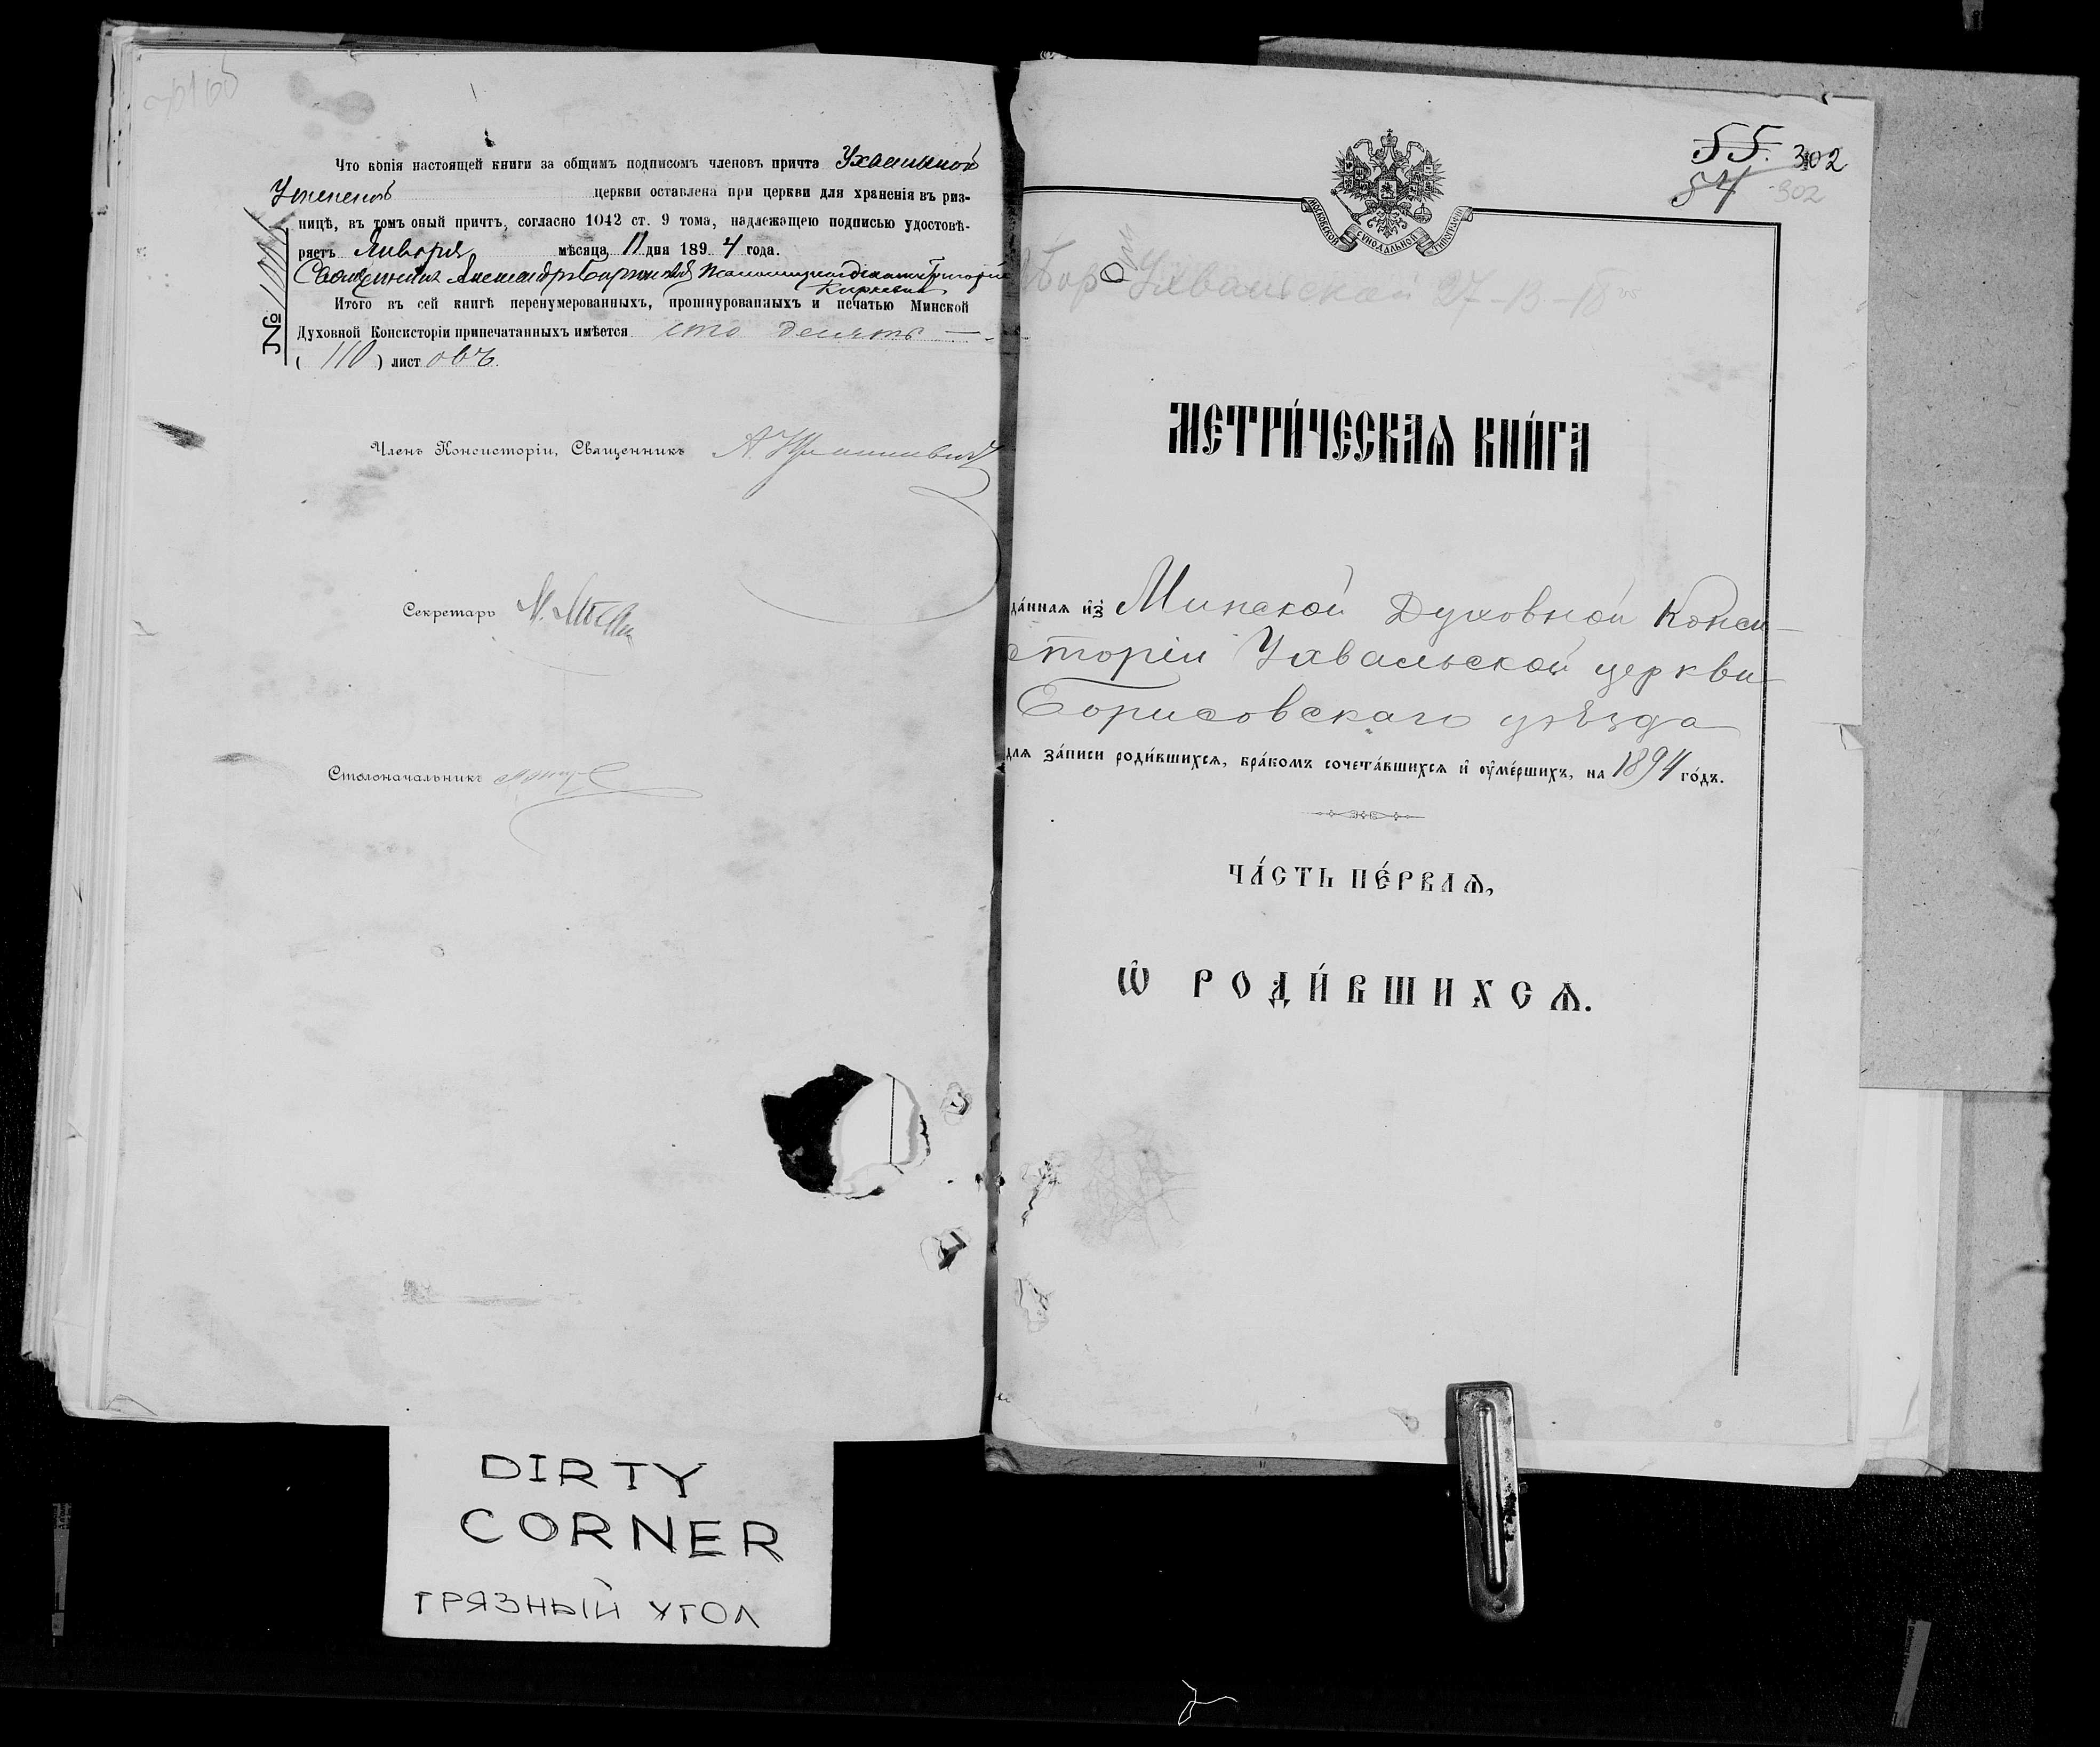 Что копія настоящей книги за общимъ подписомъ членовъ причта
церкви оставлена при церкви для храненія въ риз-
ницѣ, въ томъ оный причтъ, согласно 1042 ст. 9 тома, надлежащею подписью удостовѣ-
ряетъ Января мѣсяца 11 дня 1894 года.
Священникъ Александръ
Итого въ сей книгѣ перенумерованныхъ, прошнурованныхъ и печатью Минской
Духовной Консисторіи припечатанныхъ имѣется сто десять —
( 110 ) листовъ.
№
Членъ Консисторіи, Священникъ
Секретарь
Столоначальникъ
55. 302
54 302
МОСКОВСКОЙ СѴНОДАЛЬНОЙ ТИПОГРАФІИ
Бор Ухвальской 27-13-18
МЕТРИ́ЧЕСКАѦ КНИ́ГА
да́ннаѧ и҆з̾ Минской Духовной Конси-
сторіи Ухвальской церкви
Борисовскаго уѣзда
для за́писи роди́вшихсѧ, бра́комъ сочета́вшихсѧ и҆ ᲂу҆ме́ршихъ, на 1894 го́дъ.
ЧА́СТЬ ПЕ́РВАѦ,
Ѡ҆ РОДИ́ВШИХСѦ.
DIRTY
CORNER
ГРЯЗНЫЙ УГОЛ